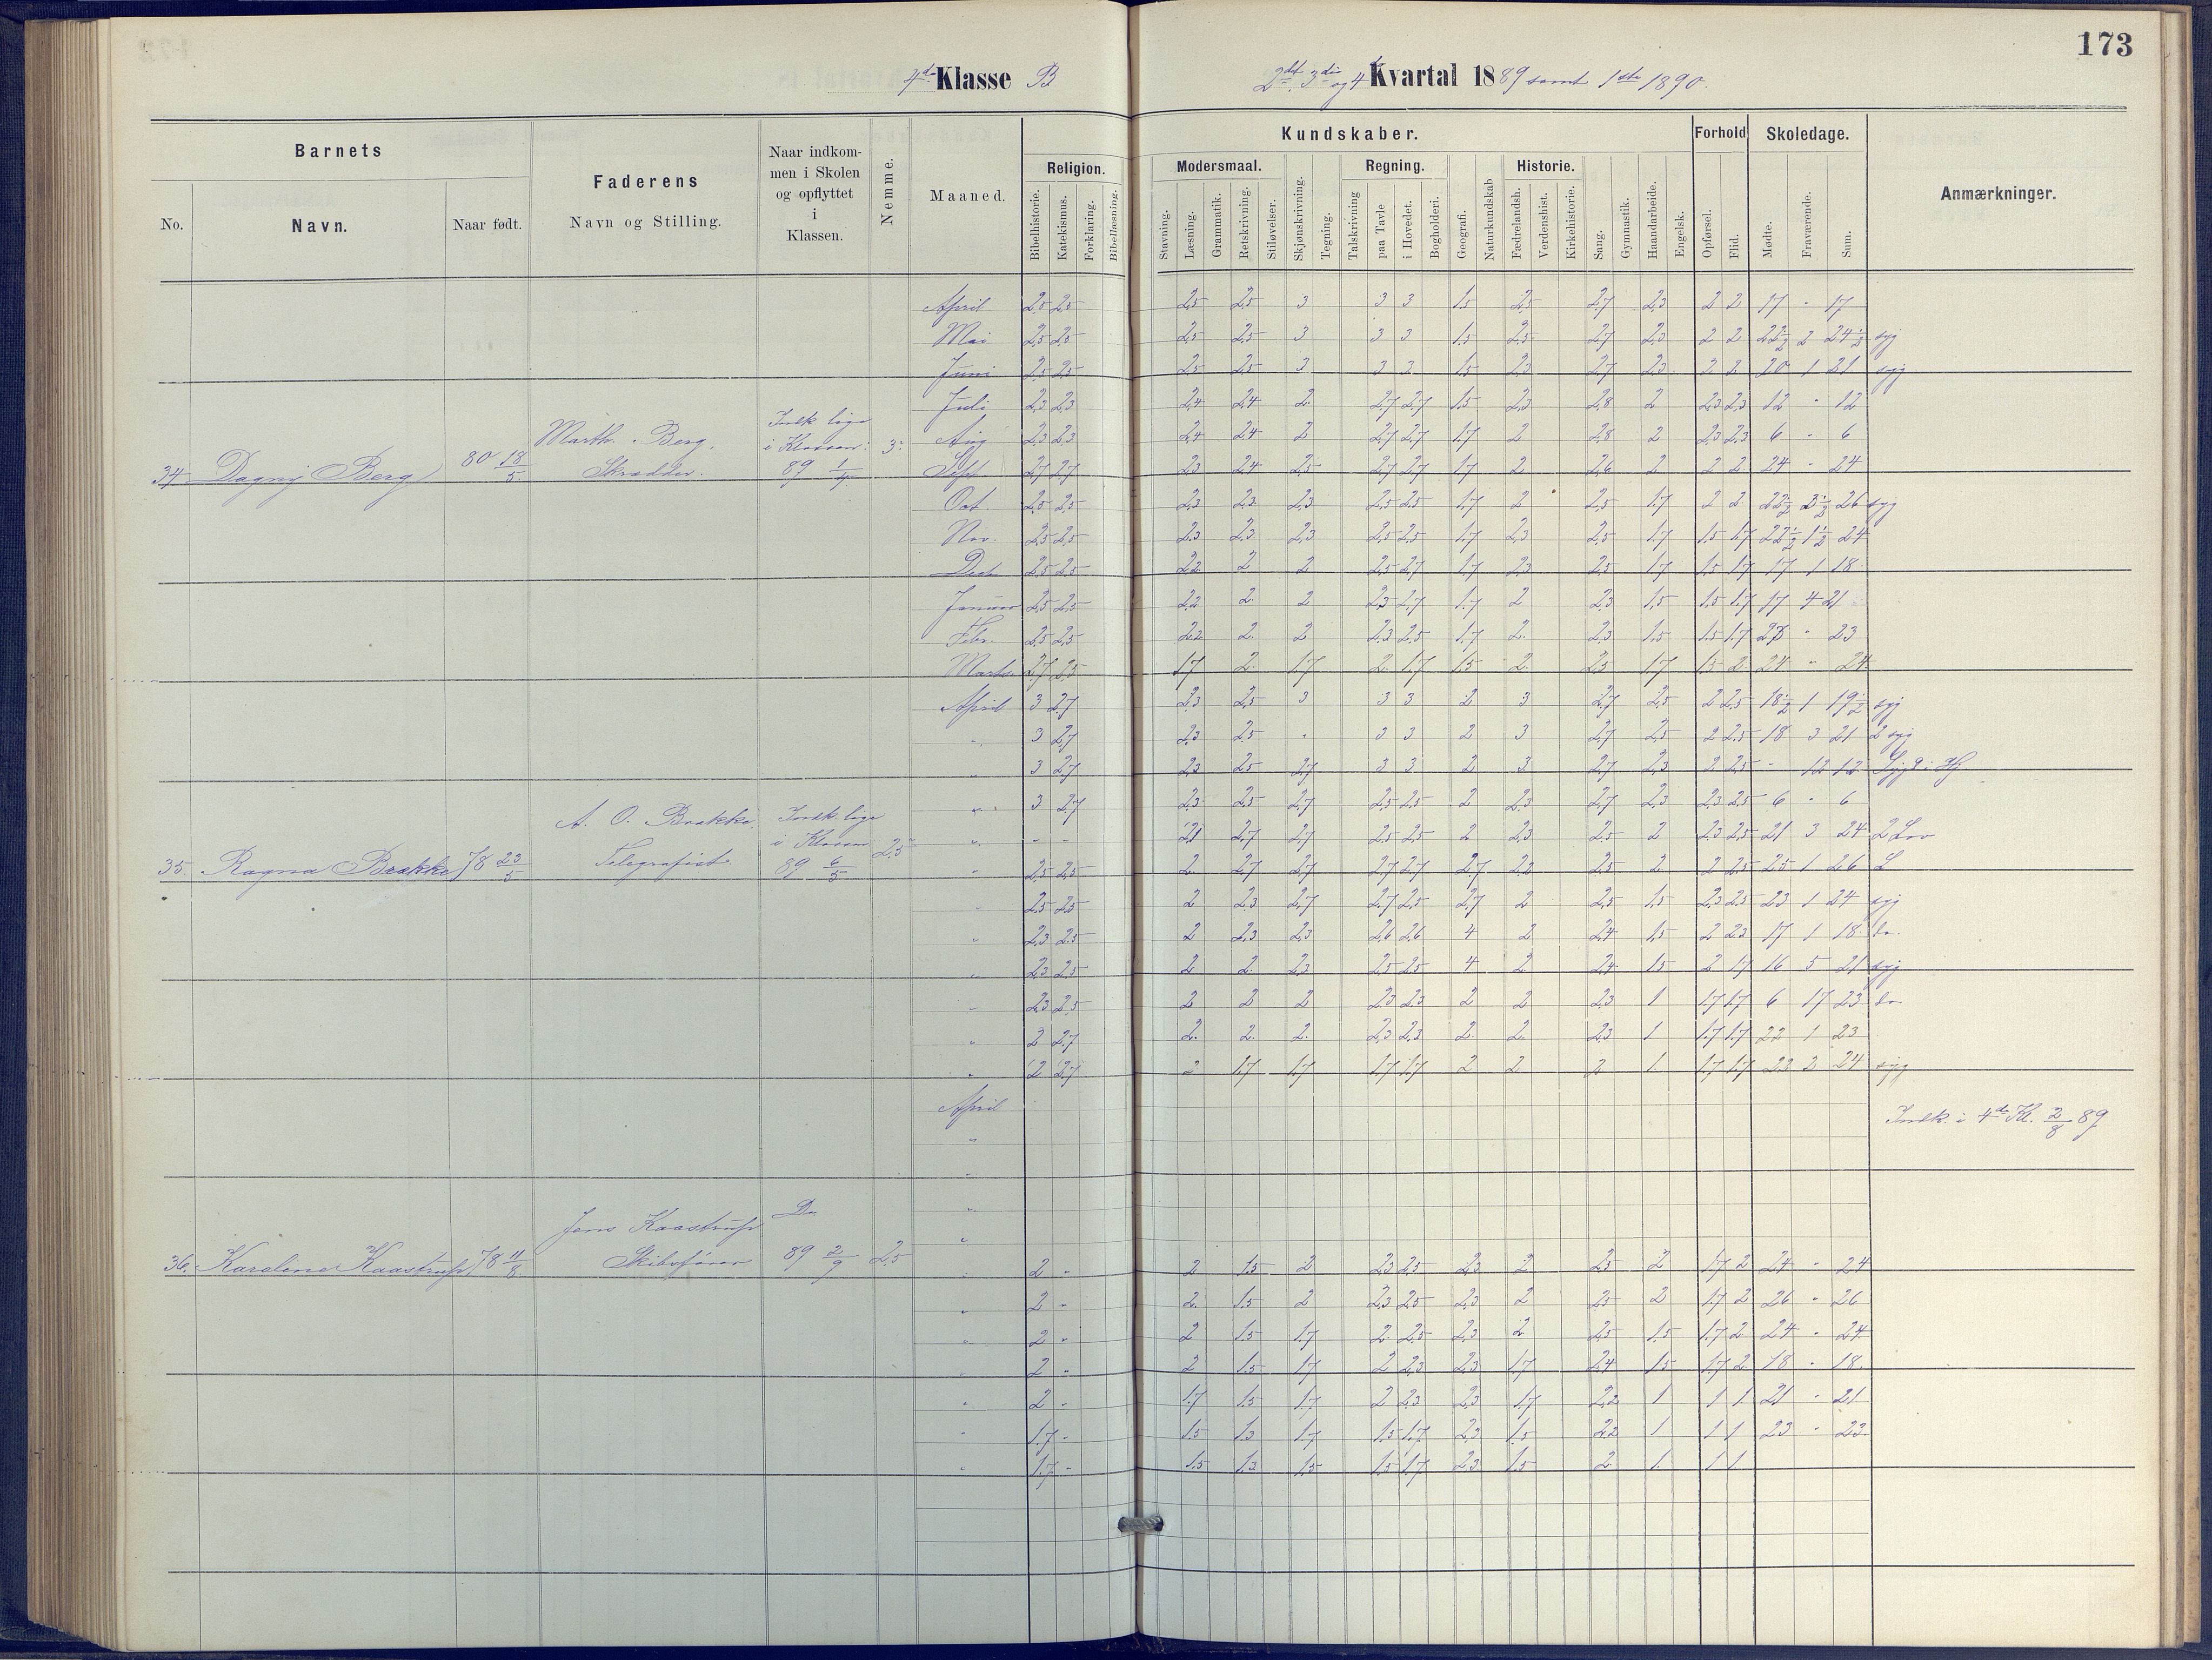 173
4de Klasse B
2det, 3die og 4de Kvartal 1889 samt 1ste 1890.
Barnets
Faderens
Navn og Stilling.
Naar indkommen i Skolen og opflyttet i Klassen.
Nemme.
Maaned.
Kundskaber.
Forhold
Skoledage.
Anmærkninger.
No.
Navn.
Naar født.
Religion.
Modersmaal.
Regning.
Historie.
Bibelhistorie.
Katekismus.
Forklaring.
Bibellæsning.
Stavning.
Læsning.
Grammatik.
Retskrivning.
Stiløvelser.
Skjønskrivning.
Tegning.
Talskrivning
paa Tavle
i Hovedet.
Bogholderi.
Geografi.
Naturkundskab
Fædrelandsh.
Verdenshist.
Kirkehistorie.
Sang.
Gymnastik.
Haandarbeide.
Engelsk.
Opførsel.
Flid.
Mødte.
Fraværende.
Sum.
April 2,5 2,5 2,5 2,5 3 3 3 1,5 2,5 2,7 2,3 2 2 17 " 17
Mai 2,5 2,5 2,5 2,5 3 3 3 1,5 2,5 2,7 2,3 2 2 22½ 2 24½ syg
Juni 2,5 2,5 2,5 2,5 3 3 3 1,5 2,3 2,7 2,3 2 2 20 1 21 syg
Juli 2,3 2,3 2,4 2,4 2 2,7 2,7 1,5 2,3 2,8 2 2,3 2,3 12 " 12
Aug 2,3 2,3 2,4 2,4 2 2,7 2,7 1,7 2 2,8 2 2,3 2,3 6 " 6
34 Dagny Berg 80 18/5 Marth. Berg, Skrædder. Indk. lige i Klassen 89 1/4 3 Sept 2,7 2,7 2,3 2,4 2,5 2,7 2,7 1,7 2 2,6 2 2 2 24 " 24
Oct. 2,5 2,5 2,3 2,3 2,3 2,5 2,5 1,7 2 2,5 1,7 2 2 22½ 3½ 26 syg
Nov. 2,5 2,5 2,3 2,3 2,3 2,5 2,5 1,7 2,3 2,5 1,7 1,5 1,7 22½ 1½ 24
Dec. 2,5 2,5 2,2 2 2 2,5 2,7 1,7 2,3 2,5 1,7 1,5 1,7 17 1 18
Januar 2,5 2,5 2,2 2 2 2,3 2,7 1,7 2 2,3 1,5 1,5 1,7 17 4 21
Febr. 2,5 2,5 2,2 2 2 2,3 2,5 1,7 2 2,3 1,5 1,5 1,7 23 " 23
Marts. 2,7 2,5 1,7 2 1,7 2 1,7 1,5 2 2,5 1,7 1,5 2 24 " 24
April 3 2,7 2,3 2,5 3 3 3 2 3 2,7 2,5 2 2,5 18½ 1 19½ syg
" 3 2,7 2,3 2,5 " 3 3 2 3 2,7 2,5 2 2,5 18 3 21 2 syg
" 3 2,7 2,3 2,5 2,7 3 3 2 3 2,7 2,3 2 2,5 " 12 12
" 3 2,7 2,3 2,5 2,7 2,5 2,5 2 2,3 2,7 2,3 2,3 2,5 6 " 6
" - - 2,1 2,7 2,7 2,5 2,5 2 2,3 2,5 2 2,3 2,5 21 3 24 2 Lov
35. Ragna Brække 78 23/5 A. O. Brække, Telegrafist. Indk. lige i Klassen 89 6/5 2,5 " 2,5 2,5 2 2,7 2,7 2,7 2,7 2,7 2,2 2,5 2 2 2,5 25 1 26 L
" 2,5 2,5 2 2,3 2,7 2,7 2,5 2,7 2 2,5 1,5 2,3 2,5 23 1 24 syg
" 2,3 2,5 2 2,3 2,3 2,6 2,6 4 2 2,4 1,5 2 2,3 17 1 18 do
" 2,3 2,5 2 2 2,3 2,5 2,5 4 2 2,4 1,5 2 1,7 16 5 21 syg
" 2,3 2,5 2 2 2 2,3 2,3 2 2 2,3 1 1,7 1,7 6 17 23 do
" 2 2,7 2 2 2 2,3 2,3 2 2 2,3 1 1,7 1,7 22 1 23
" 2 2,7 2 1,7 1,7 1,7 1,7 2 2 2 1 1,7 1,7 22 2 24 syg
April Indk. i 4de Kl. 2/8 89
"
"
"
"
36. Karoline Kaastrup 78 11/8 Jens Kaastrup Skibsfører Do 89 2/9 2,5 2 " 2 1,5 2 2,3 2,5 2,3 2 2,5 2 1,7 2 24 " 24
" 2 " 2 1,5 2 2,3 2,5 2,3 2 2,5 2 1,7 2 26 " 26
" 2 " 2 1,5 1,7 2 2,5 2,3 2 2,5 1,5 1,7 2 24 " 24
" 2 " 2 1,5 1,7 2 2,3 2,3 1,7 2,4 1,5 1,7 2 18 " 18
" 2 " 1,7 1,5 1,7 2 2,3 2,3 1,7 2,2 1 1 1 21 " 21
" 1,7 " 1,5 1,3 1,7 1,5 1,7 2,3 1,5 2,2 1 1 1 23 " 23
" 1,7 " 1,5 1,3 1,5 1,5 1,7 2,3 1,5 2 1 1 1